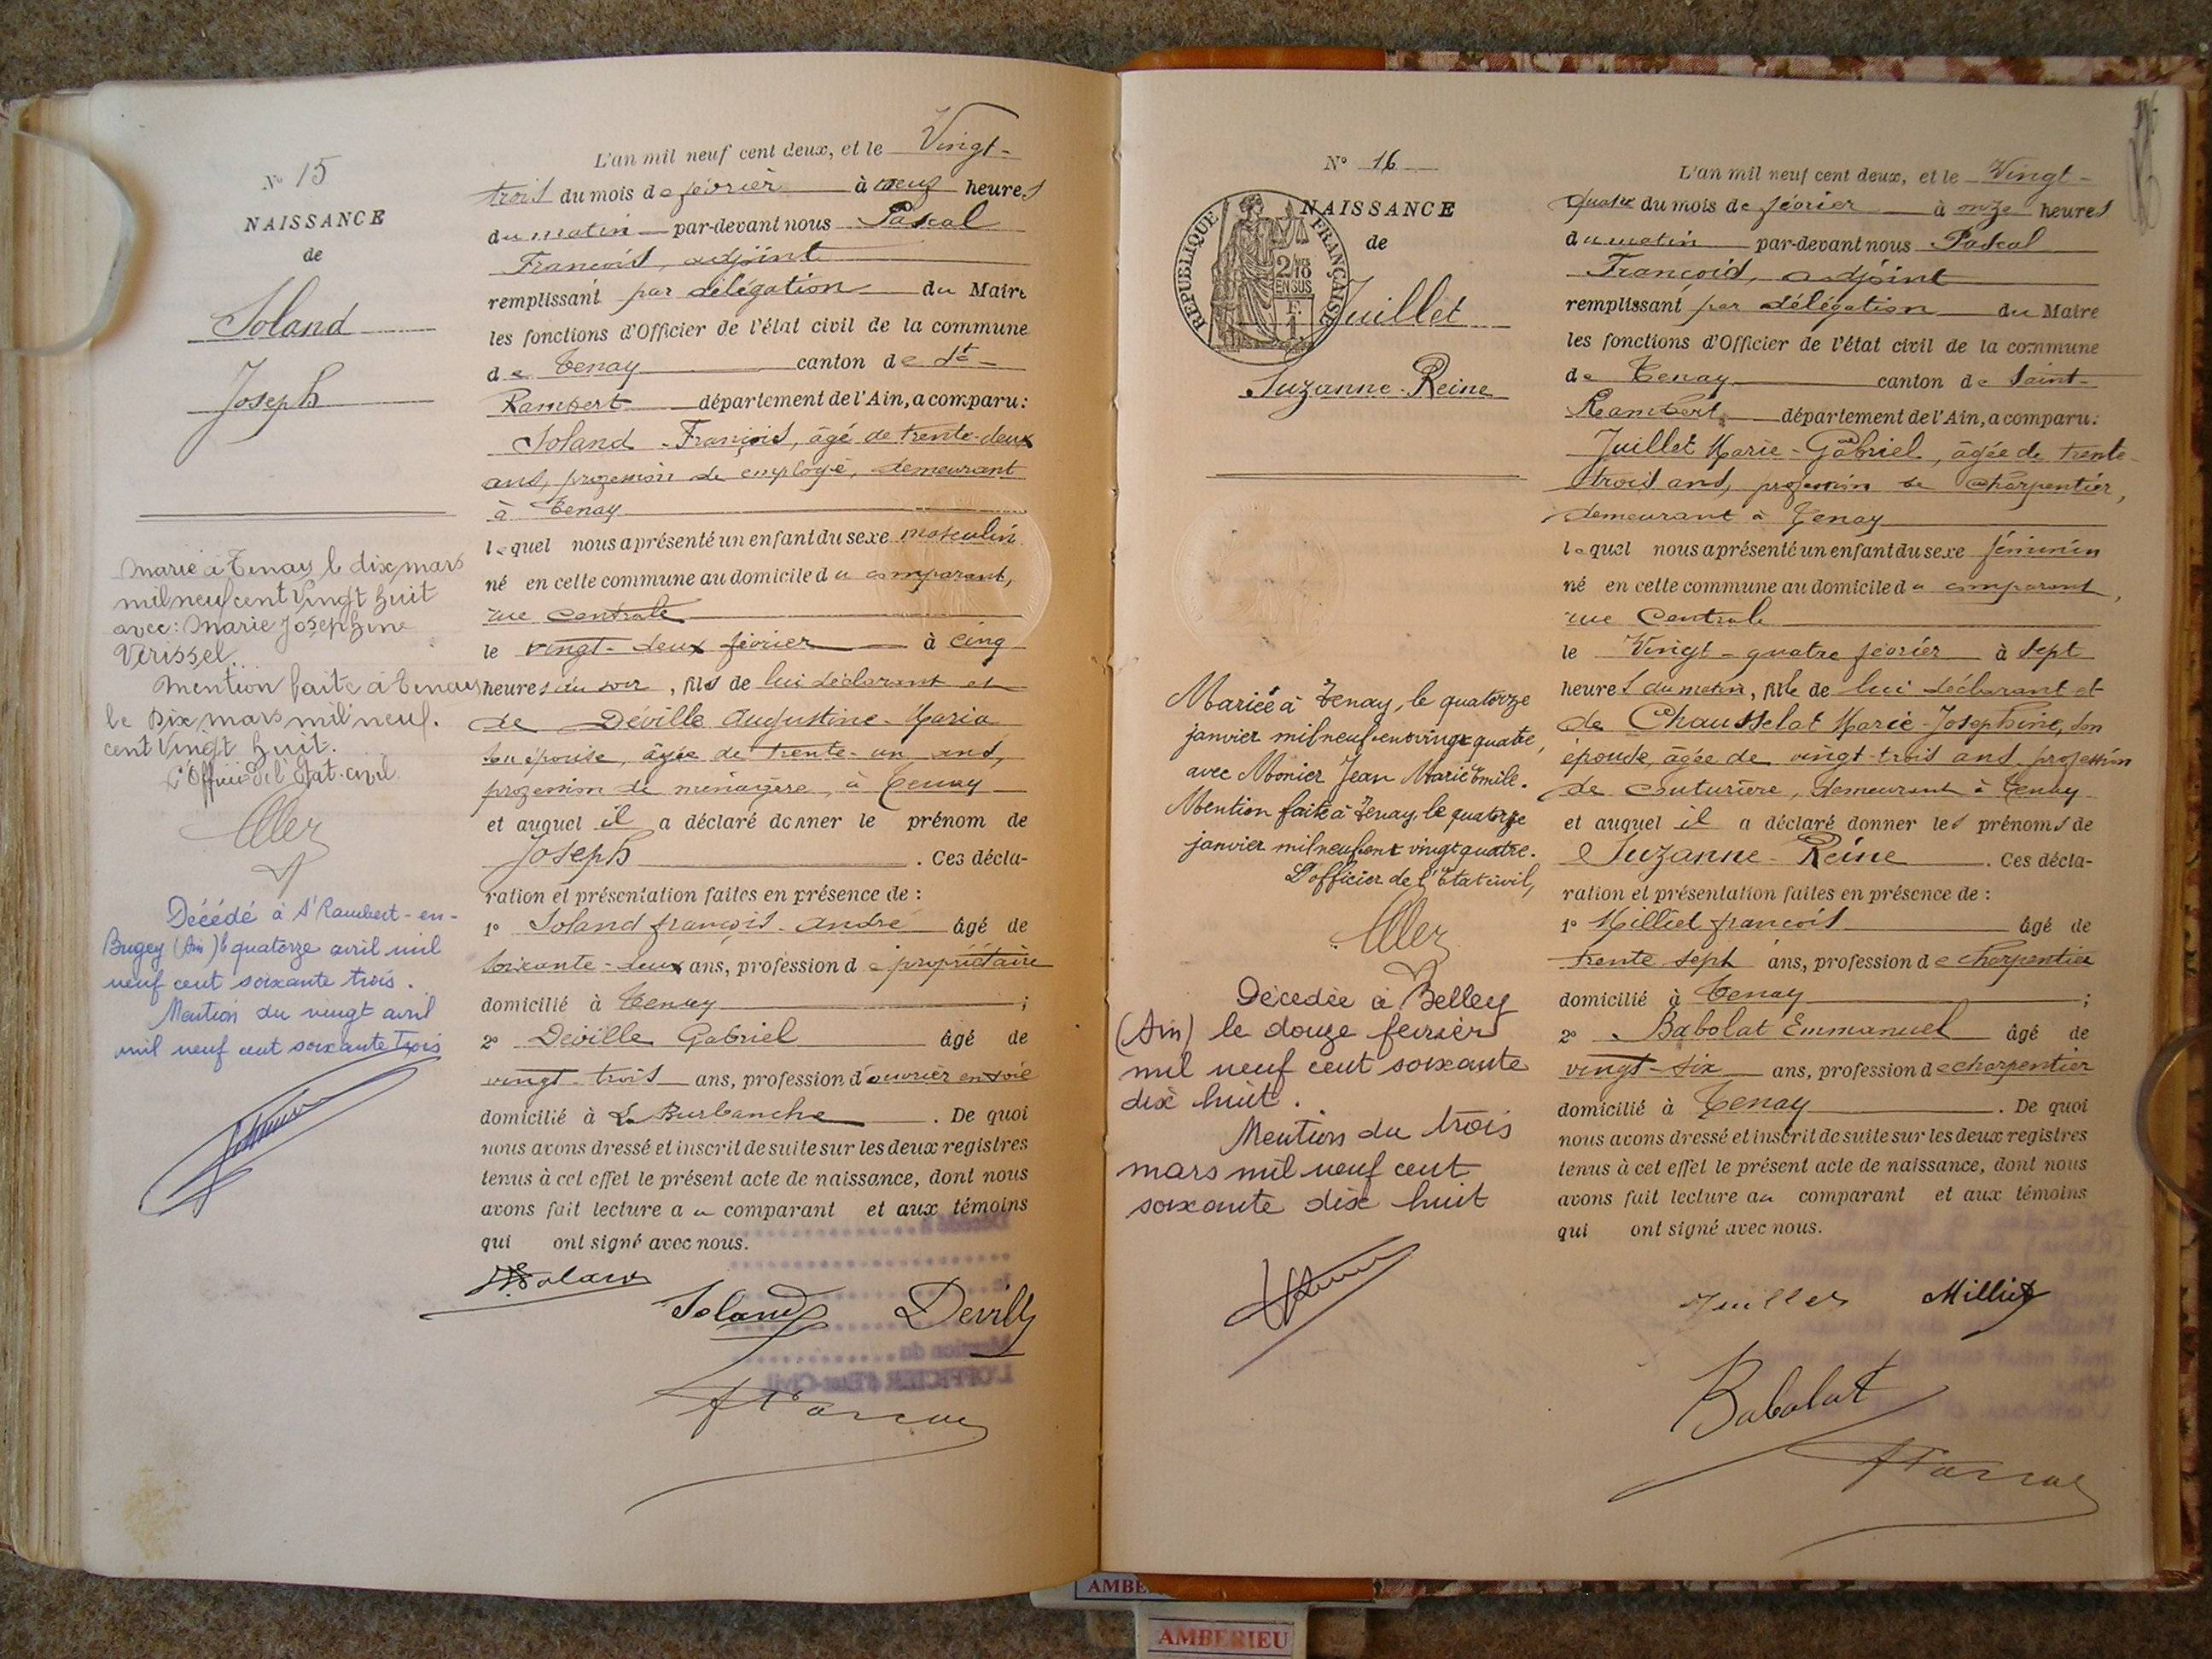 N° 15
NAISSANCE
de
Soland
Joseph
Marié à Tenay le dix mars
mil neuf cent vingt huit
avec: Marie Josephine
Verissel.
Mention faite à Tenay
le dix mars mil neuf
cent vingt huit.
L'Officier de l'Etat-civil
Décédé à St Rambert-en-
Bugey (Ain) le quatorze avril mil
neuf cent soixante trois.
Mention du vingt avril
mil neuf cent soixante trois
L'an mil neuf cent deux, et le Vingt-
trois du mois de février à neuf heures
du matin par-devant nous Pascal
François, adjoint
remplissant par délégation du Maire
les fonctions d'Officier de l'état civil de la commune
de Tenay canton de St-
Rambert département de l'Ain, a comparu:
Soland François, âgé de trente-deux
ans, profession de employé, demeurant
à Tenay
lequel nous a présenté un enfant du sexe masculin
né en cette commune au domicile du comparant,
rue Centrale
le vingt-deux février à cinq
heures du soir, fils de lui déclarant et
de Déville Augustine-Maria
son épouse, âgée de trente-un ans,
profession de ménagère, à Tenay
et auquel il a déclaré donner le prénom de
Joseph . Ces décla-
ration et présentation faites en présence de :
1° Soland françois-André âgé de
soixante-deux ans, profession de propriétaire
domicilié à Tenay ;
2° Déville Gabriel âgé de
vingt-trois ans, profession d'ouvrier en soie
domicilié à La Burbanche . De quoi
nous avons dressé et inscrit de suite sur les deux registres
tenus à cet effet le présent acte de naissance, dont nous
avons fait lecture au comparant et aux témoins
qui ont signé avec nous.
Soland
Soland Deville
N° 16
REPUBLIQUE FRANÇAISE
2/10
EN SUS
NAISSANCE
de
Juillet
Suzanne-Reine
Mariée à Tenay, le quatorze
janvier mil neuf cent vingt quatre,
avec Monier Jean Marie Emile.
Mention faite à Tenay le quatorze
janvier mil neuf cent vingt quatre.
L'officier de l'Etat civil,
Décédée à Belley
(Ain) le douze février
mil neuf cent soixante
dix huit.
Mention du trois
mars mil neuf cent
soixante dix huit
L'an mil neuf cent deux, et le Vingt-
quatre du mois de février à onze heures
du matin par-devant nous Pascal
François, adjoint
remplissant par délégation du Maire
les fonctions d'Officier de l'état civil de la commune
de Tenay canton de Saint-
Rambert département de l'Ain, a comparu:
Juillet Marie-Gabriel, âgée de trente-
trois ans, profession de Charpentier,
demeurant à Tenay
lequel nous a présenté un enfant du sexe féminin
né en cette commune au domicile du comparant,
rue Centrale
le Vingt-quatre février à sept
heures du matin, fille de lui déclarant et
de Chausselat Marie-Josephine, son
épouse, âgée de vingt-trois ans, profession
de couturière, demeurant à Tenay
et auquel il a déclaré donner les prénoms de
Suzanne-Reine . Ces décla-
ration et présentation faites en présence de :
1° Milliet françois âgé de
trente sept ans, profession de charpentier
domicilié à Tenay ;
2° Babolat Emmanuel âgé de
vingt-six ans, profession de charpentier
domicilié à Tenay . De quoi
nous avons dressé et inscrit de suite sur les deux registres
tenus à cet effet le présent acte de naissance, dont nous
avons fait lecture au comparant et aux témoins
qui ont signé avec nous.
Juillet Milliet
Babolat
AMBE
AMBERIEU